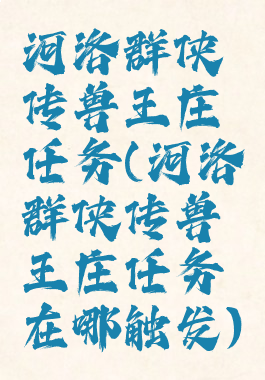 河洛群侠
传兽王庄
任务(河洛
群侠传兽
王庄任务
在哪触发)